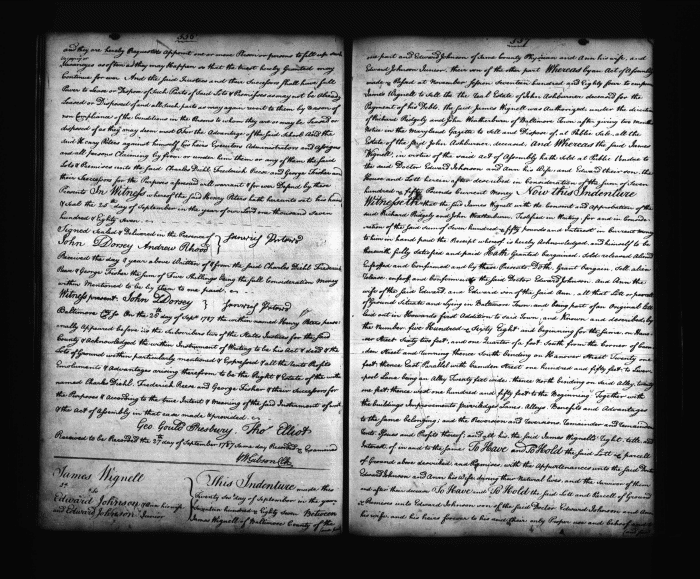 336
and they are hereby Requested Appoint one or more Person or persons to fill up such
Vacancyes as often as they may Happen so that the trust hereby Created may
Continue for ever And the said Trustees and their Successors shall have full
Power to Lease or Dispose of such Parts of said Lots & Premises as may not be Already
Leased or Disposed of and all such parts as may again revert to them by reason of
non Compliance of the Conditions in the Persons to whom they are or may be Leased or
disposed of as they may deem most for the Advantage of the said School And the
said Henry Peters against himself his Heirs Executors Administrators and Assigns
and all persons Claiming by from or under him them or any of them the said
Lots & Premises unto the said Charles Diehl Frederick Reese and George Fisher and
their Successors for the Purposes aforesaid will warrant & for ever Defend by these
Presents In Witness whereof the said Henry Peters hath hereunto set his hand
& Seal the 25th day of September in the year of our Lord one thousand Seven
hundred & Eighty Seven
Signed Sealed and Delivered in the Presence of
John Dorsey Andrew
Received the day & year above Written of & from the said Charles Diehl Frederick
Reese & George Fisher the sum of Five Shillings being the full Consideration money
within Mentioned to be by them to me paid
Witness present John Dorsey
Baltimore County So On the 25th day of Sept 1787 the within named Henry Peters perso
nally Appeared before us the Subscribers two of the States Justices for the said
County & Acknowledged the within Instrument of Writing to be his Act & deed & the
Lots of Ground within particularly mentioned & Expressed & all the Rents Profits
Emoluments & Advantages arising therefrom to be the Right & Estate of the within
named Charles Diehl Frederick Reese and George Fisher & their Successors for
the Purposes & according to the true Intent & Meaning of the said Instrument of writing
& the Act of Assembly in that case made & provided
Geo Gould Presbury Thos Elliot
Received to be Recorded the 27th day of September 1787 Same day Recorded & Examined
Wm Gibson Clk
James Wignell
to
Edward Johnson & Ann his wife
and Edward Johnson Junior
This Indenture made this
twenty day of September in the year
seventeen hundred & Eighty Seven Between
James Wignell of Baltimore County of the
337
one part and Edward Johnson of same County Physician and Ann his wife, and
Edward Johnson Junior their son of the other part Whereas by an Act of Assembly
made & Passed at November session Seventeen hundred and Eighty four to empower
James Wignell to Sell the the Real Estate of John Ashburner deceased for the
Payment of his Debts the said James Wignell was Authorized under the direction
of Richard Ridgely and John Weatherburn of Baltimore Town after giving two months
Notice in the Maryland Gazette to sell and Dispose of, at Public Sale, all the
Estate of the said John Ashburner, deceased, and Whereas the said James
Wignell, in virtue of the said Act of Assembly hath Sold at Public Vendue to
the said Doctor Edward Johnson and Ann his Wife and Edward their son, the
House and Lott herein after described in Consideration of the sum of Seven
hundred & fifty Pounds Current Money Now this Indenture
Witnesseth that the said James Wignell with the Consent and approbation of the
said Richard Ridgely and John Weatherburn Testified in Writing, for and in Conside-
ration of the said sum of Seven hundred & fifty pounds and Interest in Current money
to him in hand paid the Receipt whereof is hereby Acknowledged, and himself to be
therewith fully Satisfied and paid Hath Granted bargained sold released Aliened
Enfeoffed and Confirmed and by these Presents Doth Grant Bargain Sell Alien
release enfeoff and confirm unto the said Doctor Edward Johnson and Ann the
wife of the said Edward, and Edward son of the said Ann, all that Lott or parcel
of Ground Situate and Lying in Baltimore Town and being part of an Original Lott
Laid out in Howards first Addition to said Town and Known and described by
the Number five Hundred & Sixty Eight, and beginning for the same, on Hano
ver Street Sixty two feet, and one Quarter of a foot South from the Corner of Cam
den Street and running thence South binding on Hanover Street Twenty one
feet: thence East Parallel with Camden Street one hundred and fifty feet to Liver
pool Lane being an Alley Twenty feet wide: thence North binding on said Alley twenty
one feet: thence west one hundred and fifty feet to the Beginning: Together with
the buildings Improvements Priviledges Lanes, Alleys Benefits and Advantages
to the same belonging; and the Reversion and Reversions Remainder and Remainders
Rents Issues and Profits thereof; and all his the said James Wignells Right, title and
Interest of in and to the same: To Have and To Hold the said Lott & parcell
of Ground above described, and Premises with the Appurtenances unto the said Doctor
Edward Johnson and Ann his wife during their Natural lives, and the Survivor of them
and after their decease To Have and To Hold the said Lott and Parcell of Ground
& Premises unto Edward Johnson son of the said Doctor Edward Johnson and Ann
his wife and his heirs forever to his and their only Proper use and behoof and to